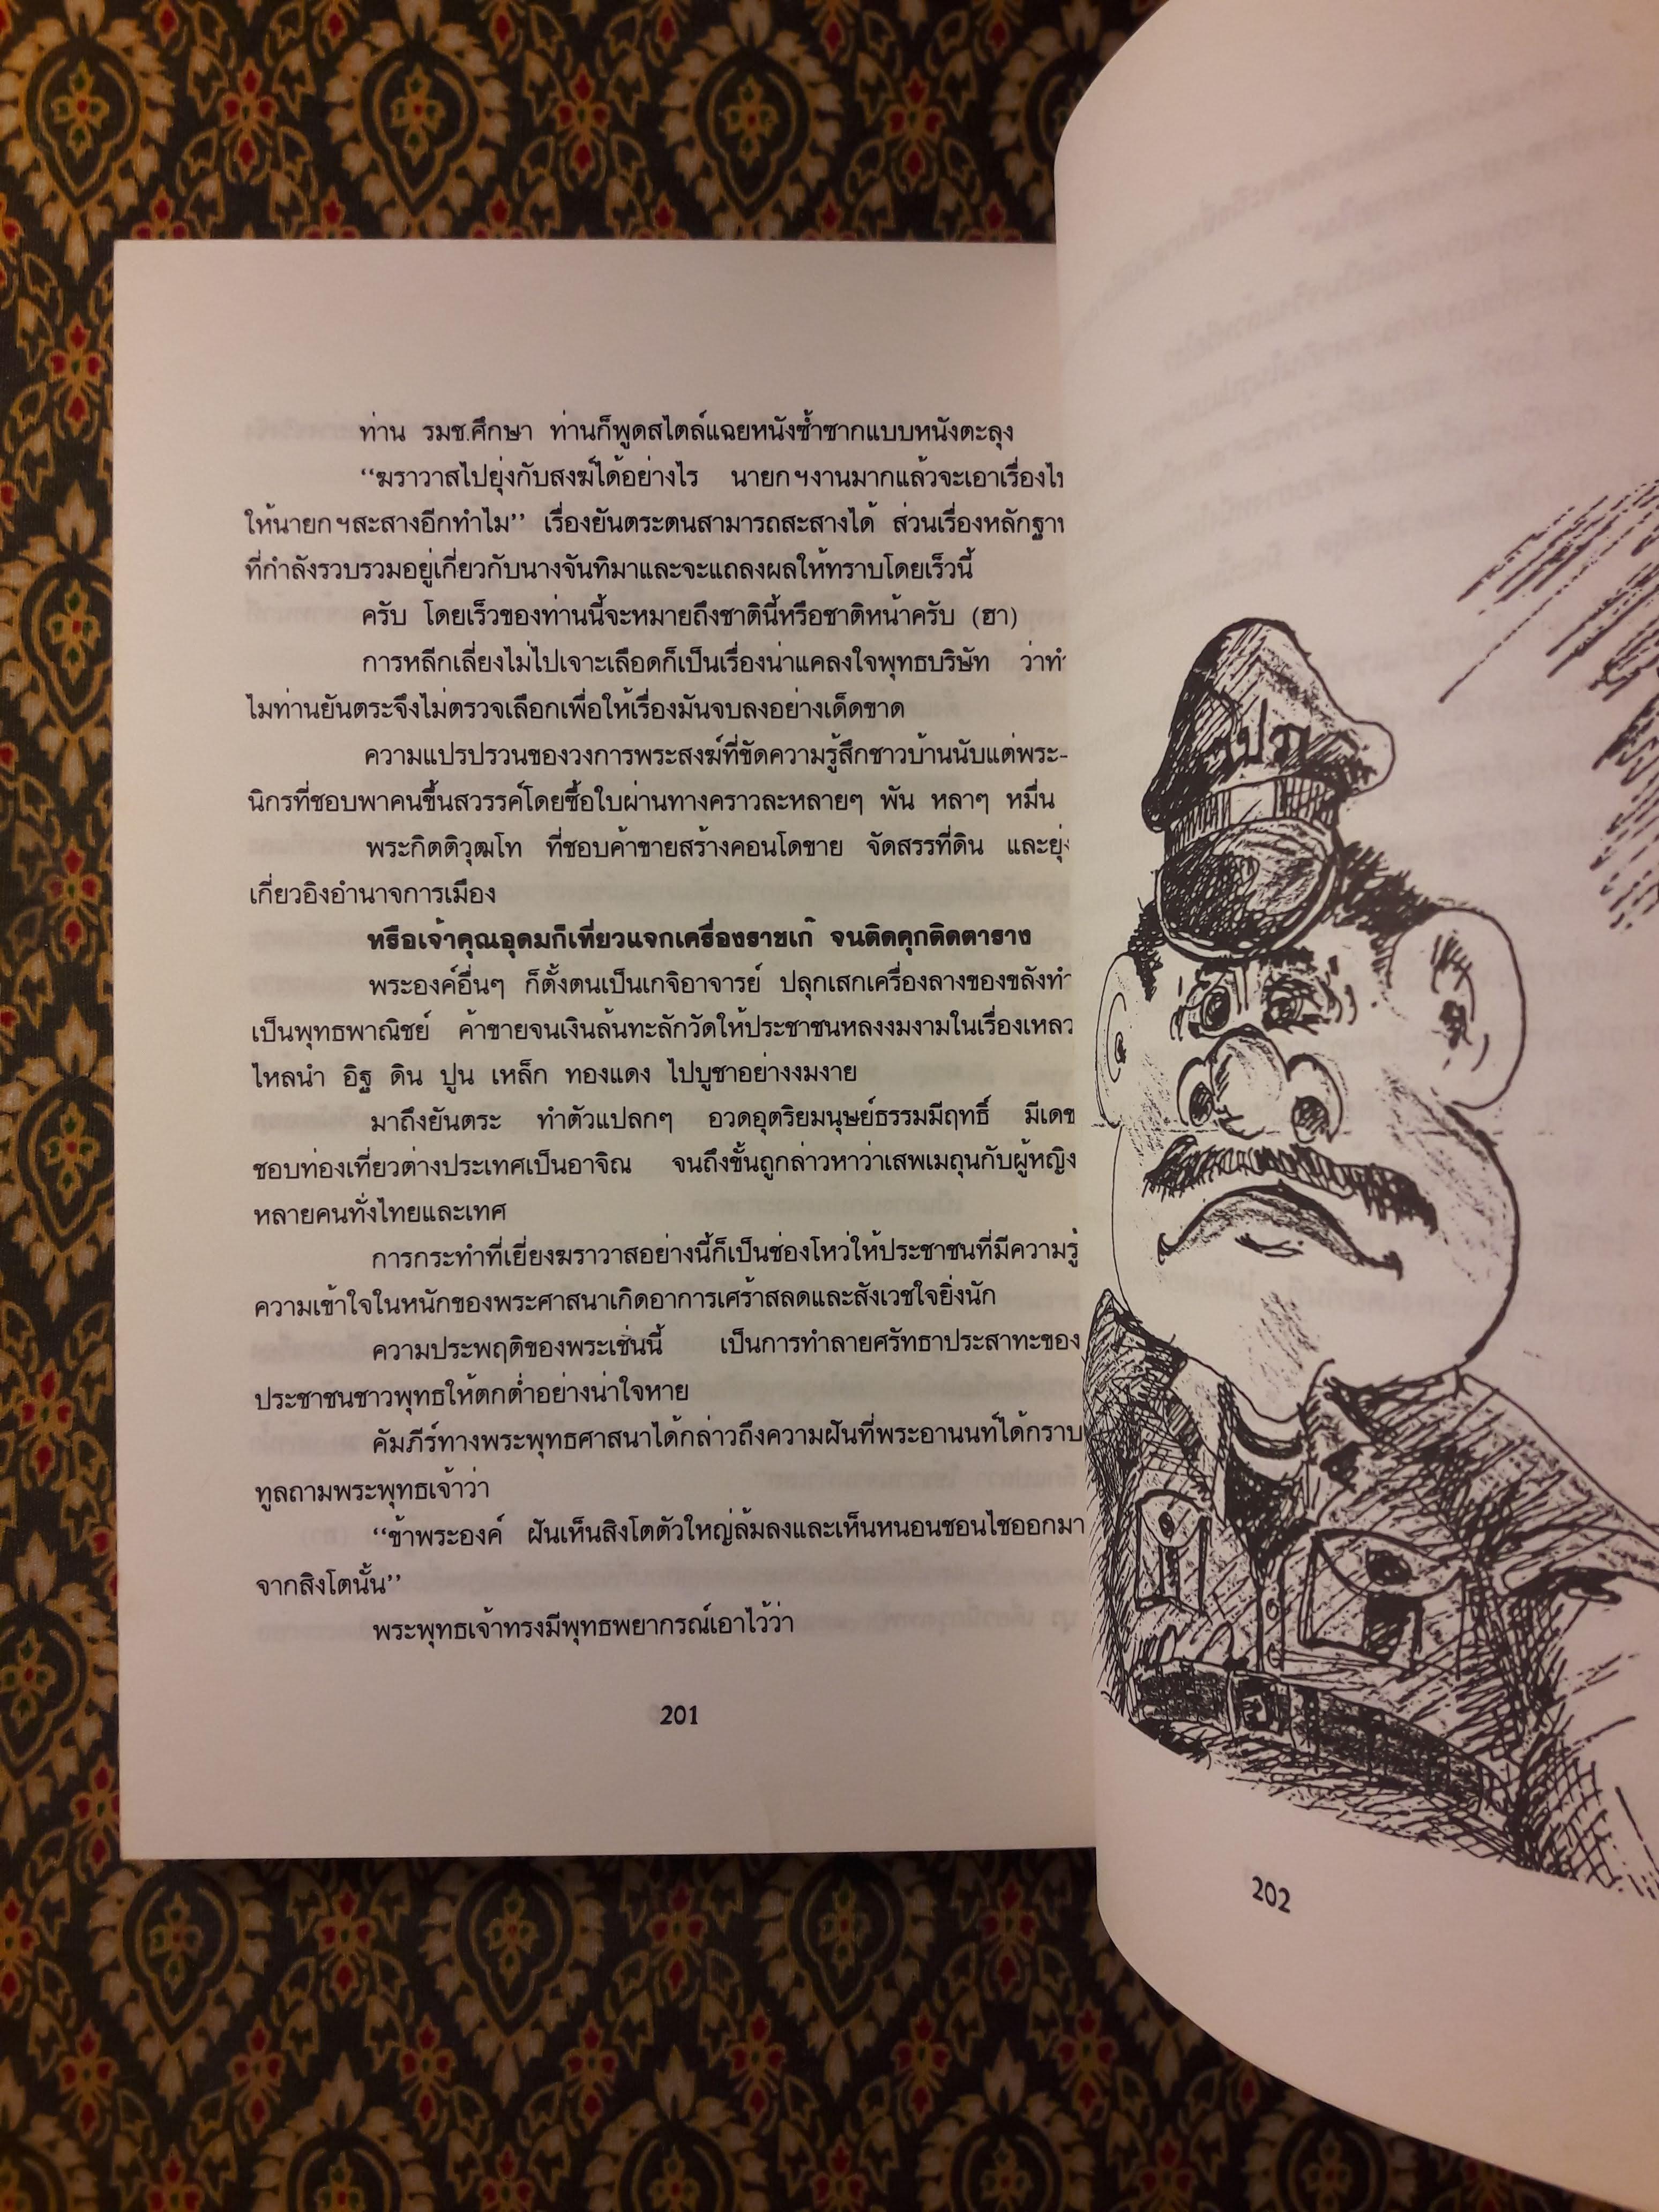 ท่าน รมช.ศึกษา ท่านก็พูดสไตล์แฉยหนังซ้ำซากแบบหนังตะลุง
“ฆราวาสไปยุ่งกับสงฆ์ได้อย่างไร นายกฯงานมากแล้วจะเอาเรื่อง
ให้นายกฯสะสางอีกทำไม” เรื่องยันตระตนสามารถสะสางได้ ส่วนเรื่อง
ที่กำลังรวบรวมอยู่เกี่ยวกับนางจันทิมาและจะแถลงผลให้ทราบโดยเร็วนี้
ครับ โดยเร็วของท่านนี้จะหมายถึงชาตินี้หรือชาติหน้าครับ (ฮา)
การหลีกเลี่ยงไม่ไปเจาะเลือดก็เป็นเรื่องน่าแคลงใจพุทธบริษัท ว่าทำ
ไมท่านยันตระจึงไม่ตรวจเลือกเพื่อให้เรื่องมันจบลงอย่างเด็ดขาด
ความแปรปรวนของวงการพระสงฆ์ที่ขัดความรู้สึกชาวบ้านนับแต่พระ-
นิกรที่ชอบพาคนขึ้นสวรรค์โดยซื้อใบผ่านทางคราวละหลายๆ พัน หลาๆ หมื่น
พระกิตติวุฒโท ที่ชอบค้าขายสร้างคอนโดขาย จัดสรรที่ดิน และยุ่ง
เกี่ยวอิงอำนาจการเมือง
หรือเจ้าคุณอุดมก็เที่ยวแจกเครื่องราชเก๊ จนติดคุกติดตาราง
พระองค์อื่นๆ ก็ตั้งตนเป็นเกจิอาจารย์ ปลุกเสกเครื่องลางของขลังทำ
เป็นพุทธพาณิชย์ ค้าขายจนเงินล้นทะลักวัดให้ประชาชนหลงงมงามในเรื่องเหลว
ไหลนำ อิฐ ดิน ปูน เหล็ก ทองแดง ไปบูชาอย่างงมงาย
มาถึงยันตระ ทำตัวแปลกๆ อวดอุตริยมนุษย์ธรรมมีฤทธิ์ มีเดช
ชอบท่องเที่ยวต่างประเทศเป็นอาจิณ จนถึงขั้นถูกล่าวหาว่าเสพเมถุนกับผู้หญิง
หลายคนทั่งไทยและเทศ
การกระทำที่เยี่ยงฆราวาสอย่างนี้ก็เป็นช่องโหว่ให้ประชาชนที่มีความรู้
ความเข้าใจในหนักของพระศาสนาเกิดอาการเศร้าสลดและสังเวชใจยิ่งนัก
ความประพฤติของพระเช่นนี้ เป็นการทำลายศรัทธาประสาทะของ
ประชาชนชาวพุทธให้ตกต่ำอย่างน่าใจหาย
คัมภีร์ทางพระพุทธศาสนาได้กล่าวถึงความฝันที่พระอานนท์ได้กราบ
ทูลถามพระพุทธเจ้าว่า
“ข้าพระองค์ ฝันเห็นสิงโตตัวใหญ่ล้มลงและเห็นหนอนชอนไชออกมา
จากสิงโตนั้น”
พระพุทธเจ้าทรงมีพุทธพยากรณ์เอาไว้ว่า
201
202